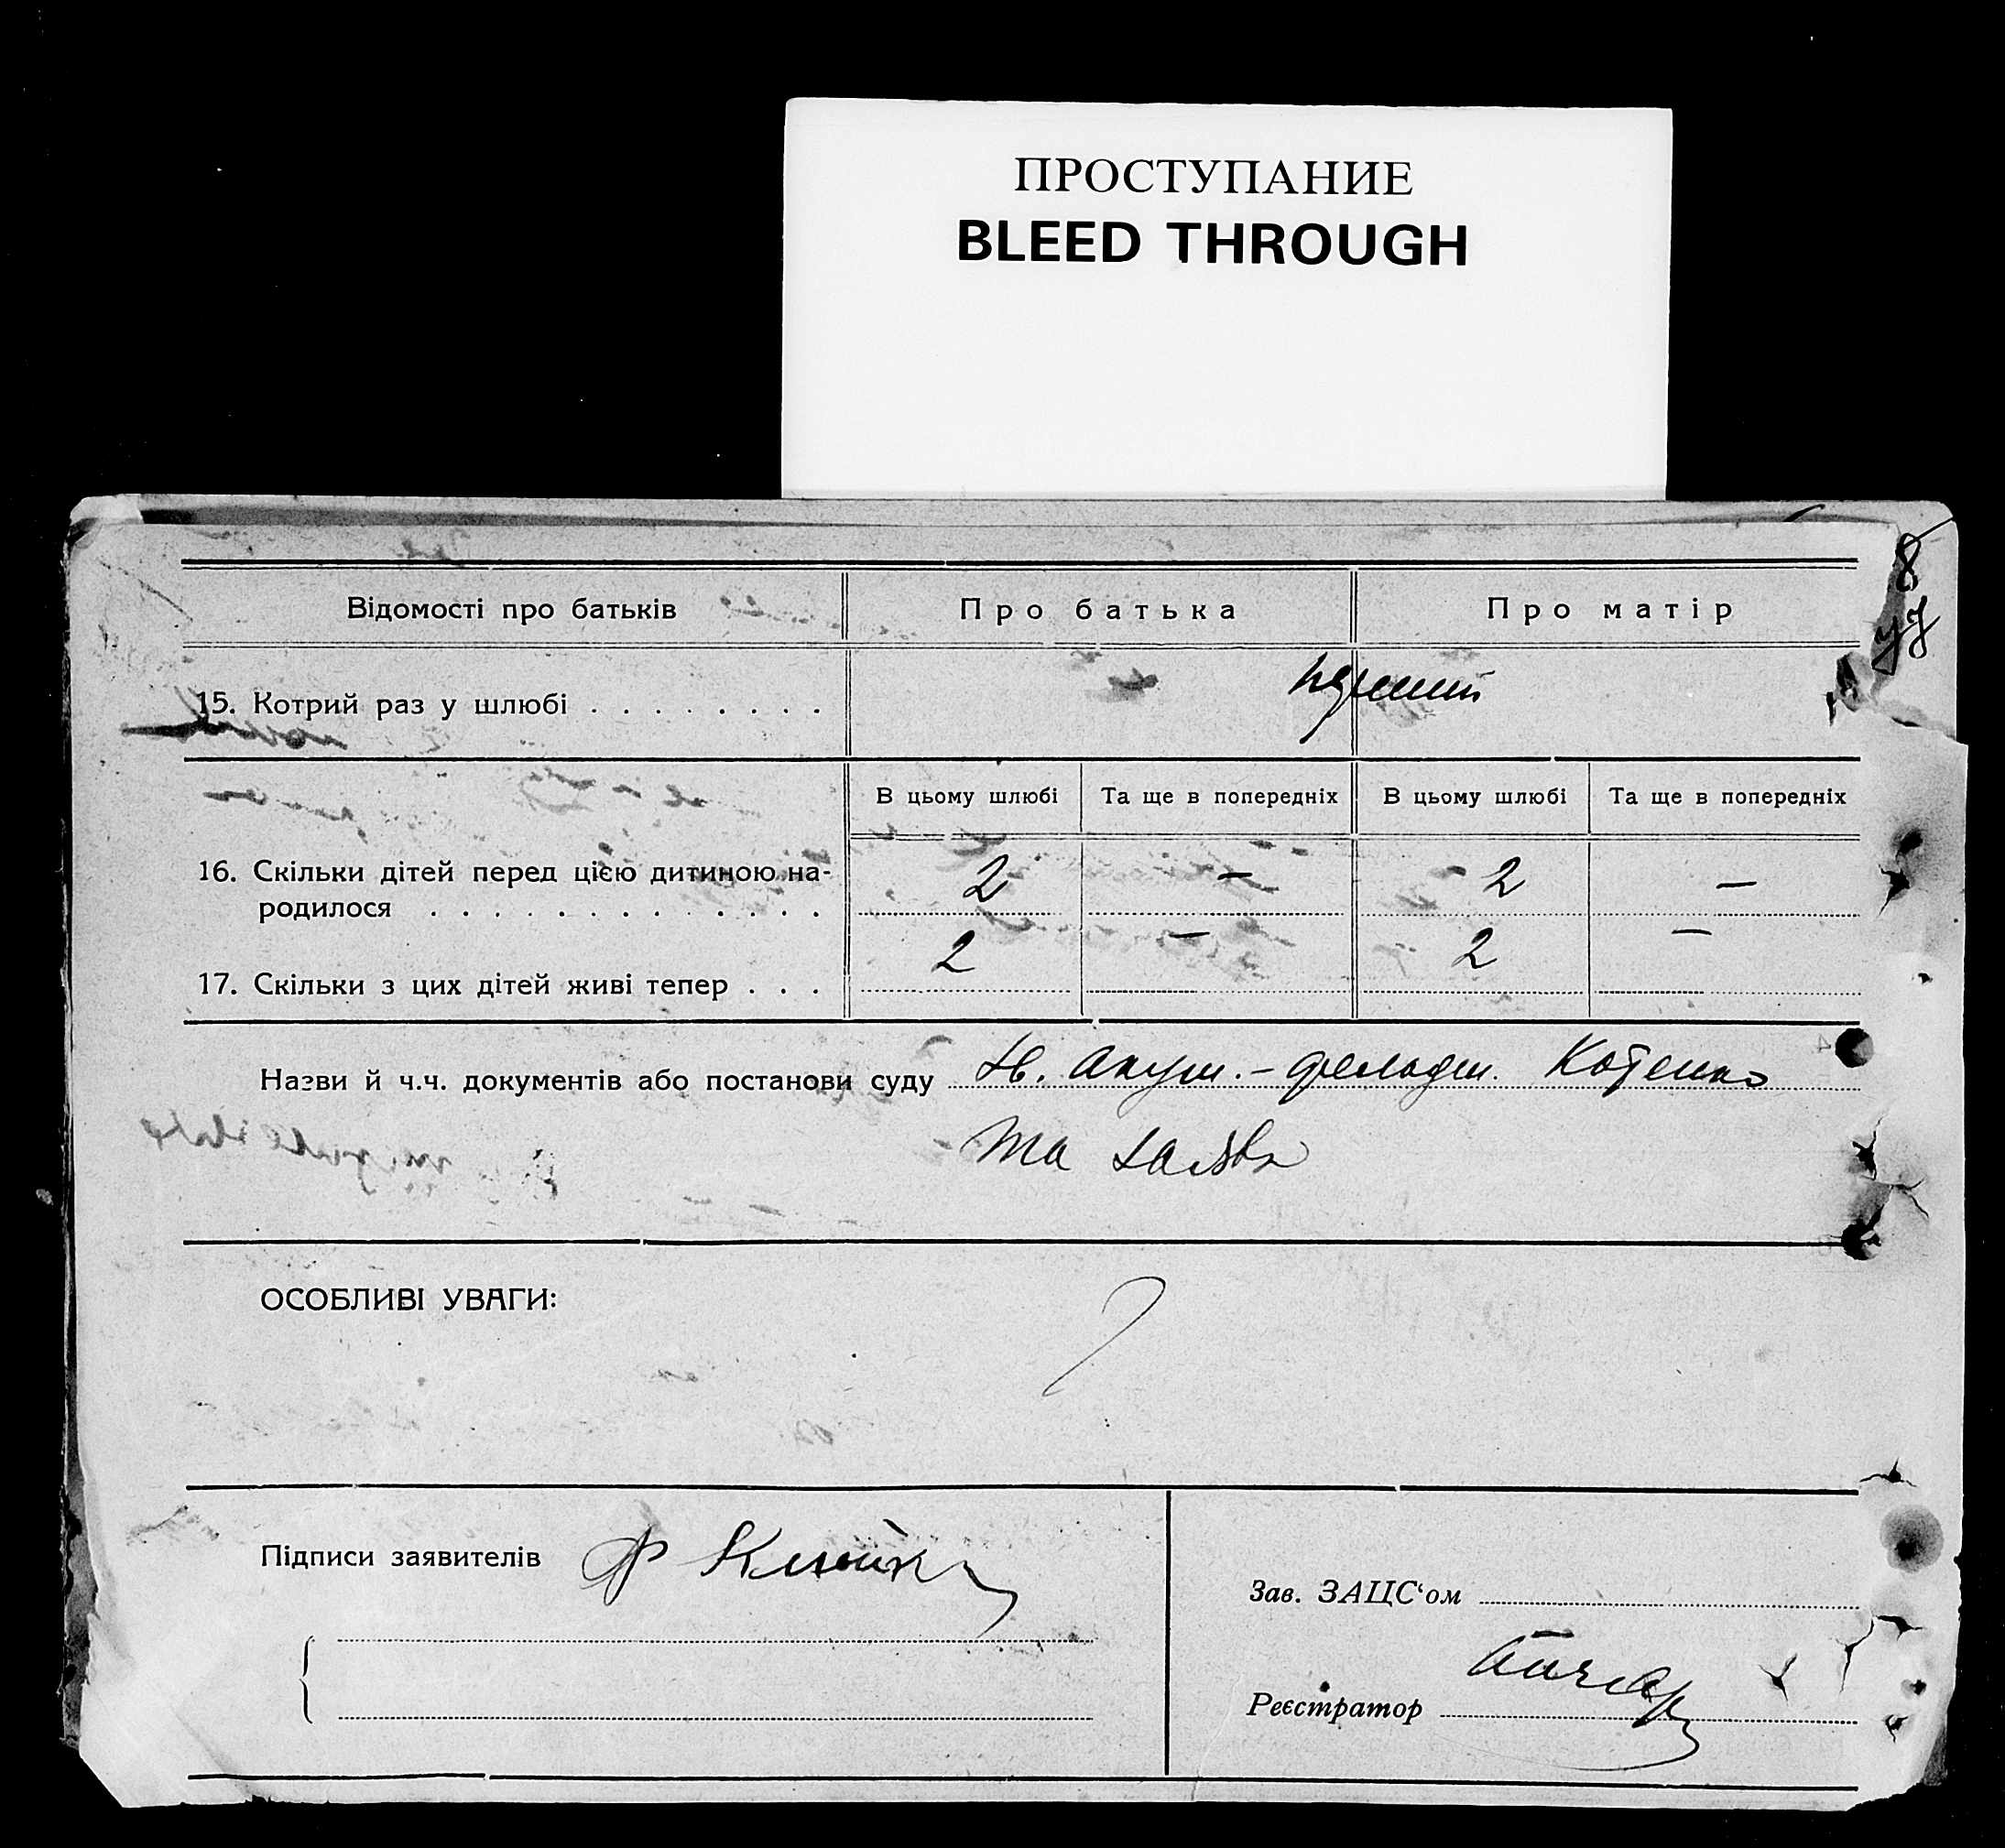 ПРОСТУПАНИЕ
BLEED THROUGH
8
Відомості про батьків Про батька Про матір
15. Котрий раз у шлюбі . . . . . . . . перший
В цьому шлюбі Та ще в попередніх В цьому шлюбі Та ще в попередніх
16. Скільки дітей перед цією дитиною на-
родилося . . . . . . . . . . . . . 2 — 2 —
17. Скільки з цих дітей живі тепер . . . 2 — 2 —
Назви й ч.ч. документів або постанови суду Акуш.-фельдш. Котенко
та заява
ОСОБЛИВІ УВАГИ:
Підписи заявителів
Зав. ЗАЦС‘ом
Реєстратор